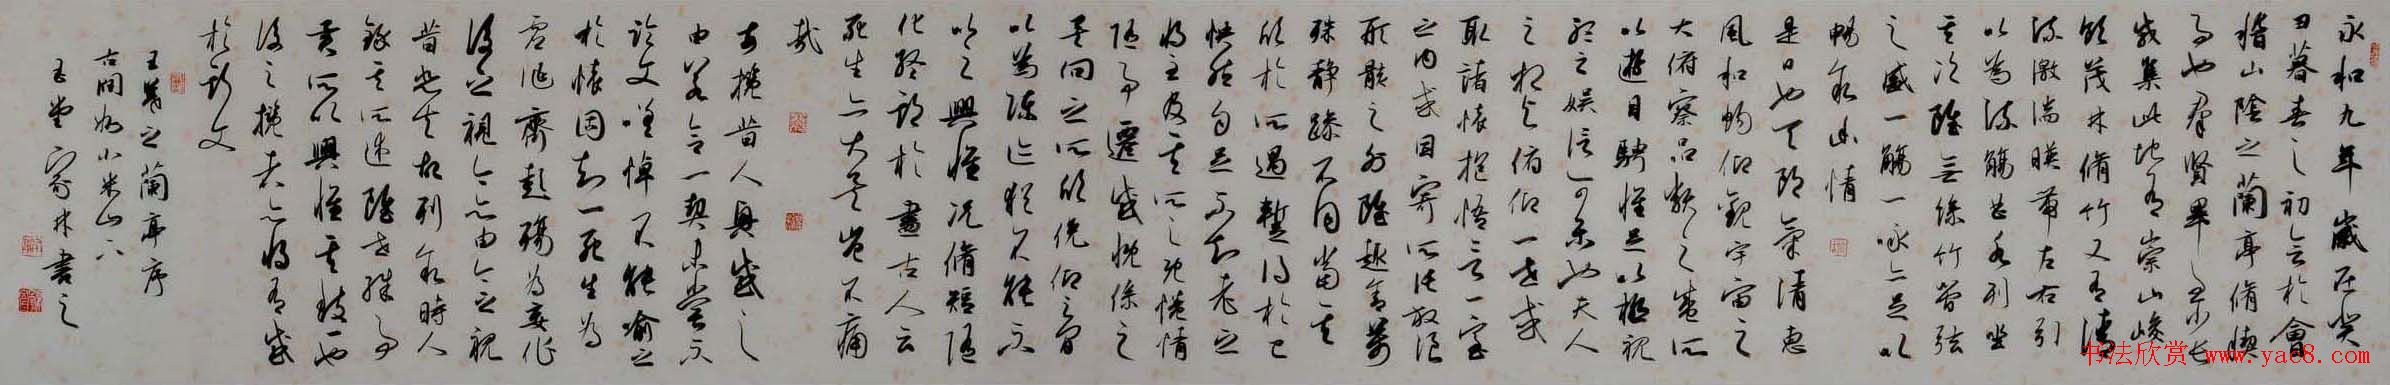 永和九年歲在癸
丑暮春之初會於會
稽山陰之蘭亭脩禊
事也羣賢畢至少長
咸集此地有崇山峻
領茂林脩竹又有清
流激湍暎帶左右引
以為流觴曲水列坐
其次雖無絲竹管弦
之盛一觴一詠亦足以
暢叙幽情
是日也天朗氣清惠
風和暢仰觀宇宙之
大俯察品類之盛所
以遊目騁懷足以極視
聽之娛信可樂也夫人
之相與俯仰一世或
取諸懷抱悟言一室
之內或因寄所託放浪
形骸之外雖趣舍萬
殊静躁不同當其
欣於所遇暫得於己
快然自足不知老之
將至及其所之既惓情
隨事遷感慨係之
矣向之所欣俛仰之間
以為陳迹猶不能不
以之興懷況脩短隨
化終期於盡古人云
死生亦大矣豈不痛
哉
每攬昔人興感之
由若合一契未嘗不
臨文嗟悼不能喻之
於懷固知一死生為
虛誕齊彭殤為妄作
後之視今亦由今之視
昔悲夫故列叙時人
錄其所述雖世殊事
異所以興懷其致一也
後之攬者亦將有感
於斯文
王羲之蘭亭序
小米山下
林書之
书法欣赏 www.yac8.com